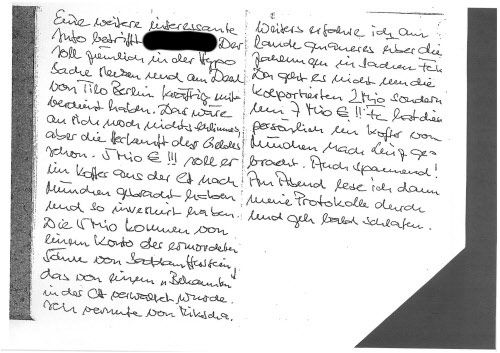 Eine weitere interessante
Info betrifft Der
soll nämlich in der Hypo
Sache stecken und am Deal
von Tilo Berlin kräftig mit-
verdient haben. Das wäre
an sich noch nichts schlimmes,
aber die Herkunft des Geldes
schon. 5 Mio € !!! soll er
im Koffer aus der CH nach
München gebracht haben
und so investiert haben.
Die 5 Mio kommen von
einem Konto der ermordeten
Söhne von
das von einem "Bekannten"
in der CH verwaltet wurde.
Ich vermute von
Weiters erfahre ich am
Rande genaueres über die
Zahlungen in Sachen
Da geht es nicht um die
kolportierten 2 Mio sondern
um 7 Mio € !!! hat den
persönlich im Koffer von
München nach Linz ge-
bracht. Auch spannend!
Am Abend lese ich dann
meine Protokolle durch
und geh bald schlafen.